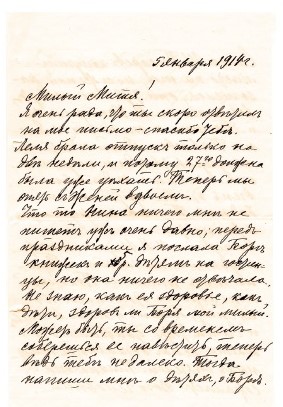 5 января 1914 г.
Милый Митя!
Я очень рада, что ты скоро ответил
на мое письмо – спасибо тебе.
Леля брала отпускъ только на
две недели, и потому 27го должна
была уже уехать. Теперь мы
опять с Женей вдвоем.
Что то Нина ничего мне не
пишетъ уже очень давно, передъ
праздниками я послала Боре
книжек и детям на
но она ничего не отвечала.
Не знаю, как ея здоровье, как
дети, здоров ли Боря мой милый.
Можетъ быть, ты со временемъ
соберешься ее навестить, теперь
ведь тебе недалеко. Тогда
напиши мне о детях, о Боре.